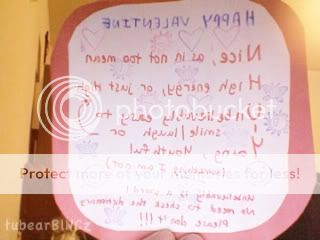 HAPPY VALENTINE
Nice, as in not too mean
High energy, or just High
Unbelievably easy to
smile/laugh or
Young, Youthful
I am not)
Unbelievably is a word!
No need to check the dictionary
Please don't!!!
photobucket
Protect more of your memories for less!
tubearBLiNGz